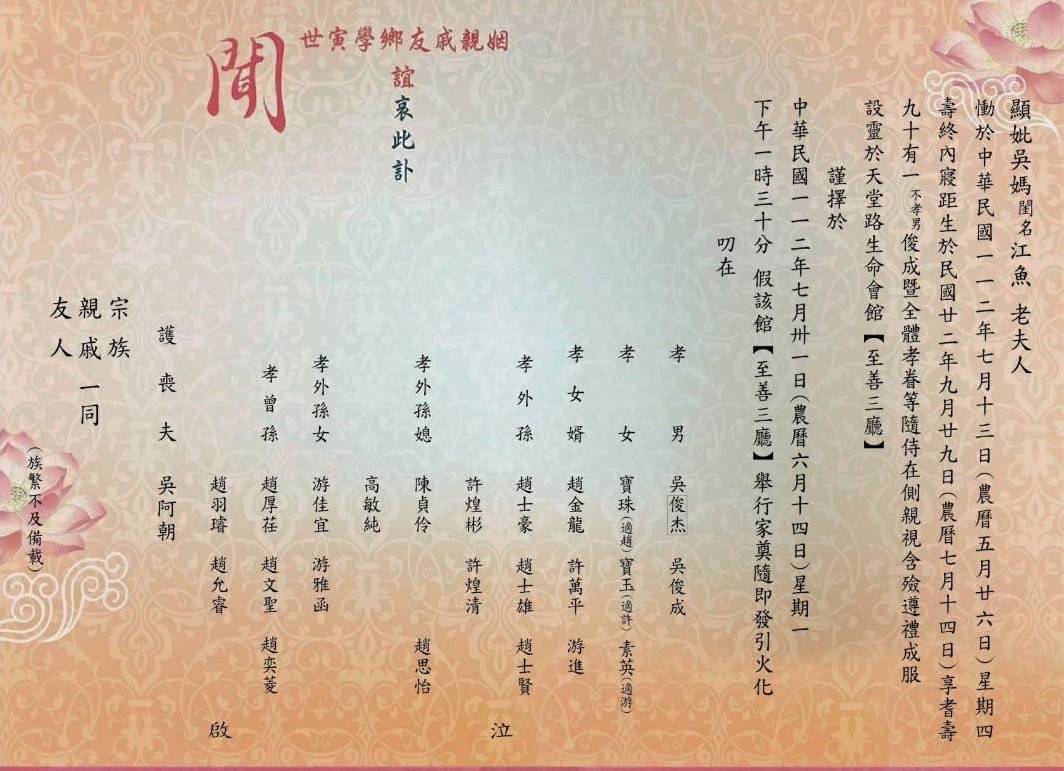 顯妣吳媽閨名江魚 老夫人
慟於中華民國一一二年七月十三日(農曆五月廿六日)星期四
壽終內寢距生於民國廿二年九月廿九日(農曆七月十四日)享耆壽
九十有一 不孝男俊成暨全體孝眷等隨侍在側親視含殮遵禮成服
設靈於天堂路生命會館【至善三廳】
謹擇於
中華民國一一二年七月卅一日(農曆六月十四日)星期一
下午一時三十分 假該館【至善三廳】舉行家奠隨即發引火化
叨在
姻親戚友鄉學寅世
誼
哀此訃
聞
孝男 吳俊杰 吳俊成
孝女 寶珠(適趙) 寶玉(適許) 素英(適游)
孝女婿 趙金龍 許萬平 游進
孝外孫 趙士豪 趙士雄 趙士賢
許煌彬 許煌清
孝外孫媳 陳貞伶 趙思怡
高敏純
孝外孫女 游佳宜 游雅函
孝曾孫 趙厚荏 趙文聖 趙奕菱
趙羽璿 趙允睿
護喪夫 吳阿朝
泣
啟
宗族
親戚一同
友人
(族繁不及備載)